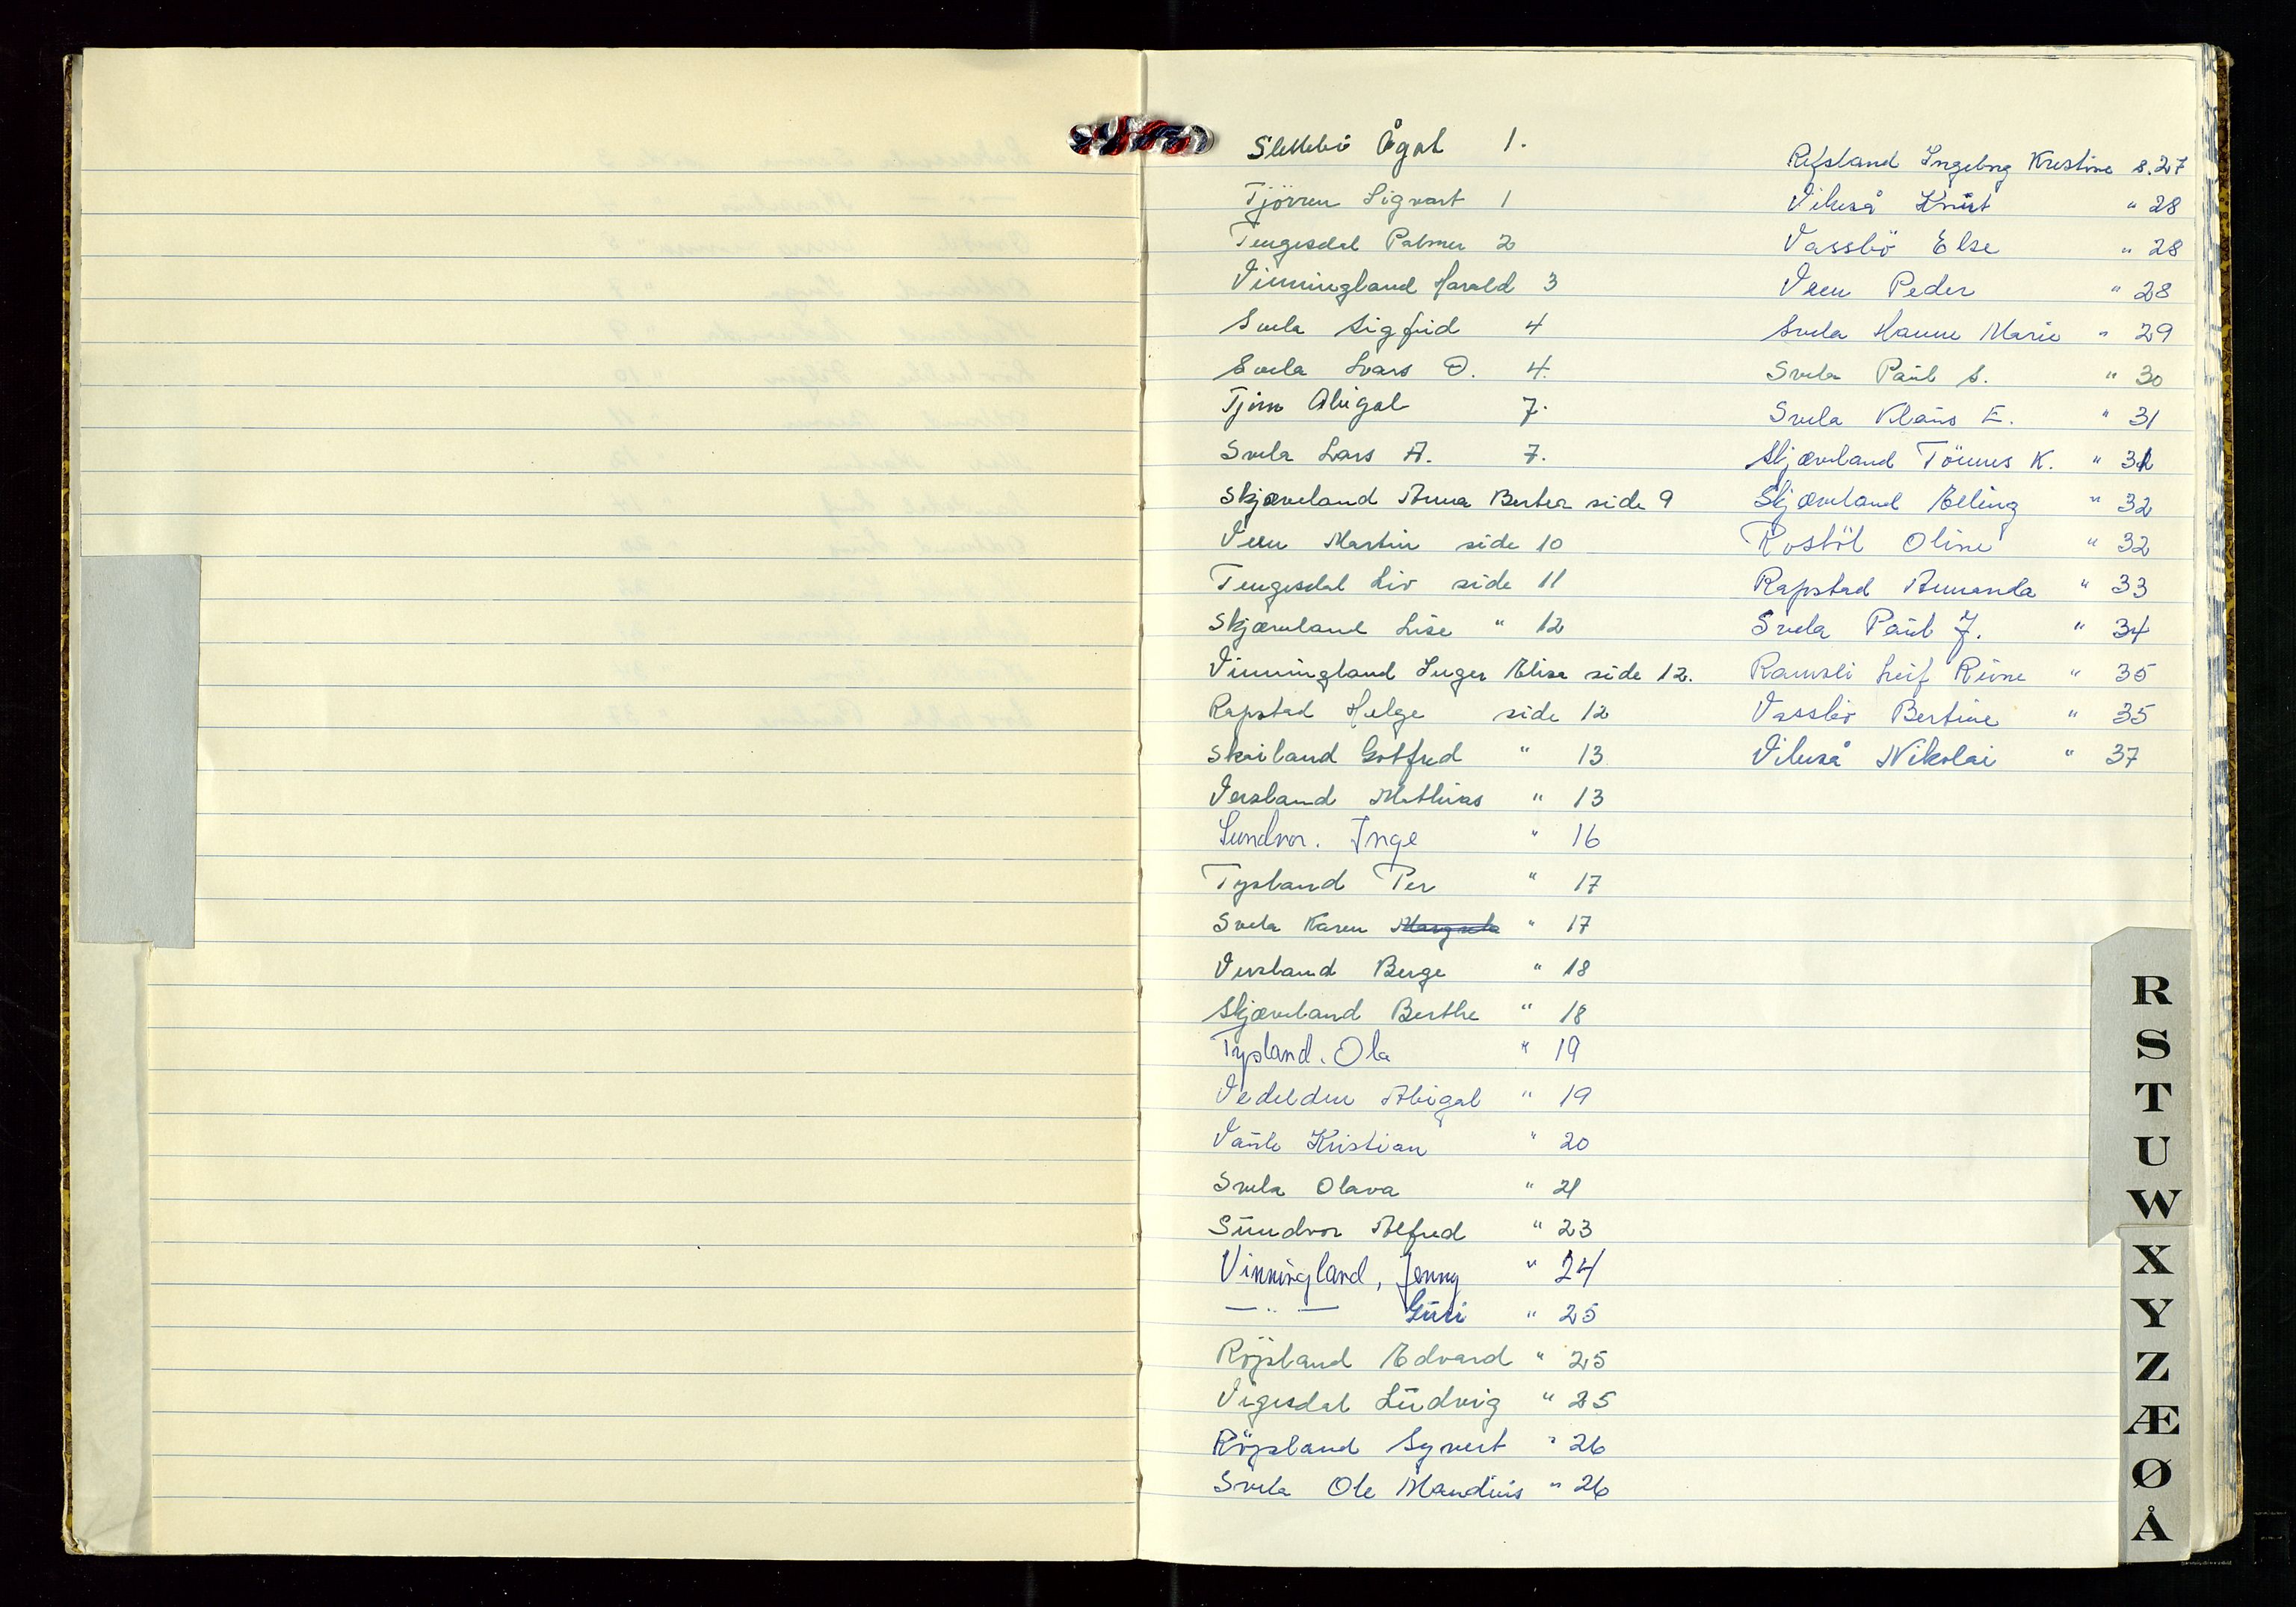 Slettebö Ågot 1.
Tjörren Sigvart 1
Tengesdal Palmer 2
Vinningland Harald 3
Svela Sigfrid 4
Svela Lars O. 4.
Tjörn Abigal 7.
Svela Lars A. 7.
Skjæveland Anna Bertea side 9
Veen Martin side 10
Tengesdal Liv side 11
Skjæveland Lise " 12
Vinningland Inger Elise side 12.
Rapstad Helge side 12
Skåiland Gotfred " 13
Versland Mathias " 13
Sundvor. Inge " 16
Tysland Per " 17
Svela Karen Margrete " 17
Versland Berge " 18
Skjæveland Berthe " 18
Tysland. Ola " 19
Vedelden Abigal " 19
Vaule Kristian " 20
Svela Olava " 21
Sundvor Alfred " 23
Vinningland, Jenny " 24
— " — Guri " 25
Röysland Edvard " 25
Vigesdal Ludvig " 25
Röysland Syvert " 26
Svela Ole Mandius " 26
Refsland Ingeborg Kristine s. 27
Vikeså Knut " 28
Vassbö Else " 28
Veen Peder " 28
Svela Hanne Marie " 29
Svela Paul S. " 30
Svela Klaus E. " 31
Skjæveland Tönnes K. " 31
Skjæveland Elling " 32
Rostöl Oline " 32
Rapstad Amanda " 33
Svela Paul J. " 34
Ramsli Leif Rune " 35
Vassbö Bertine " 35
Vikeså Nikolai " 37
R
S
T
U
W
X
Y
Z
Æ
Ø
Å